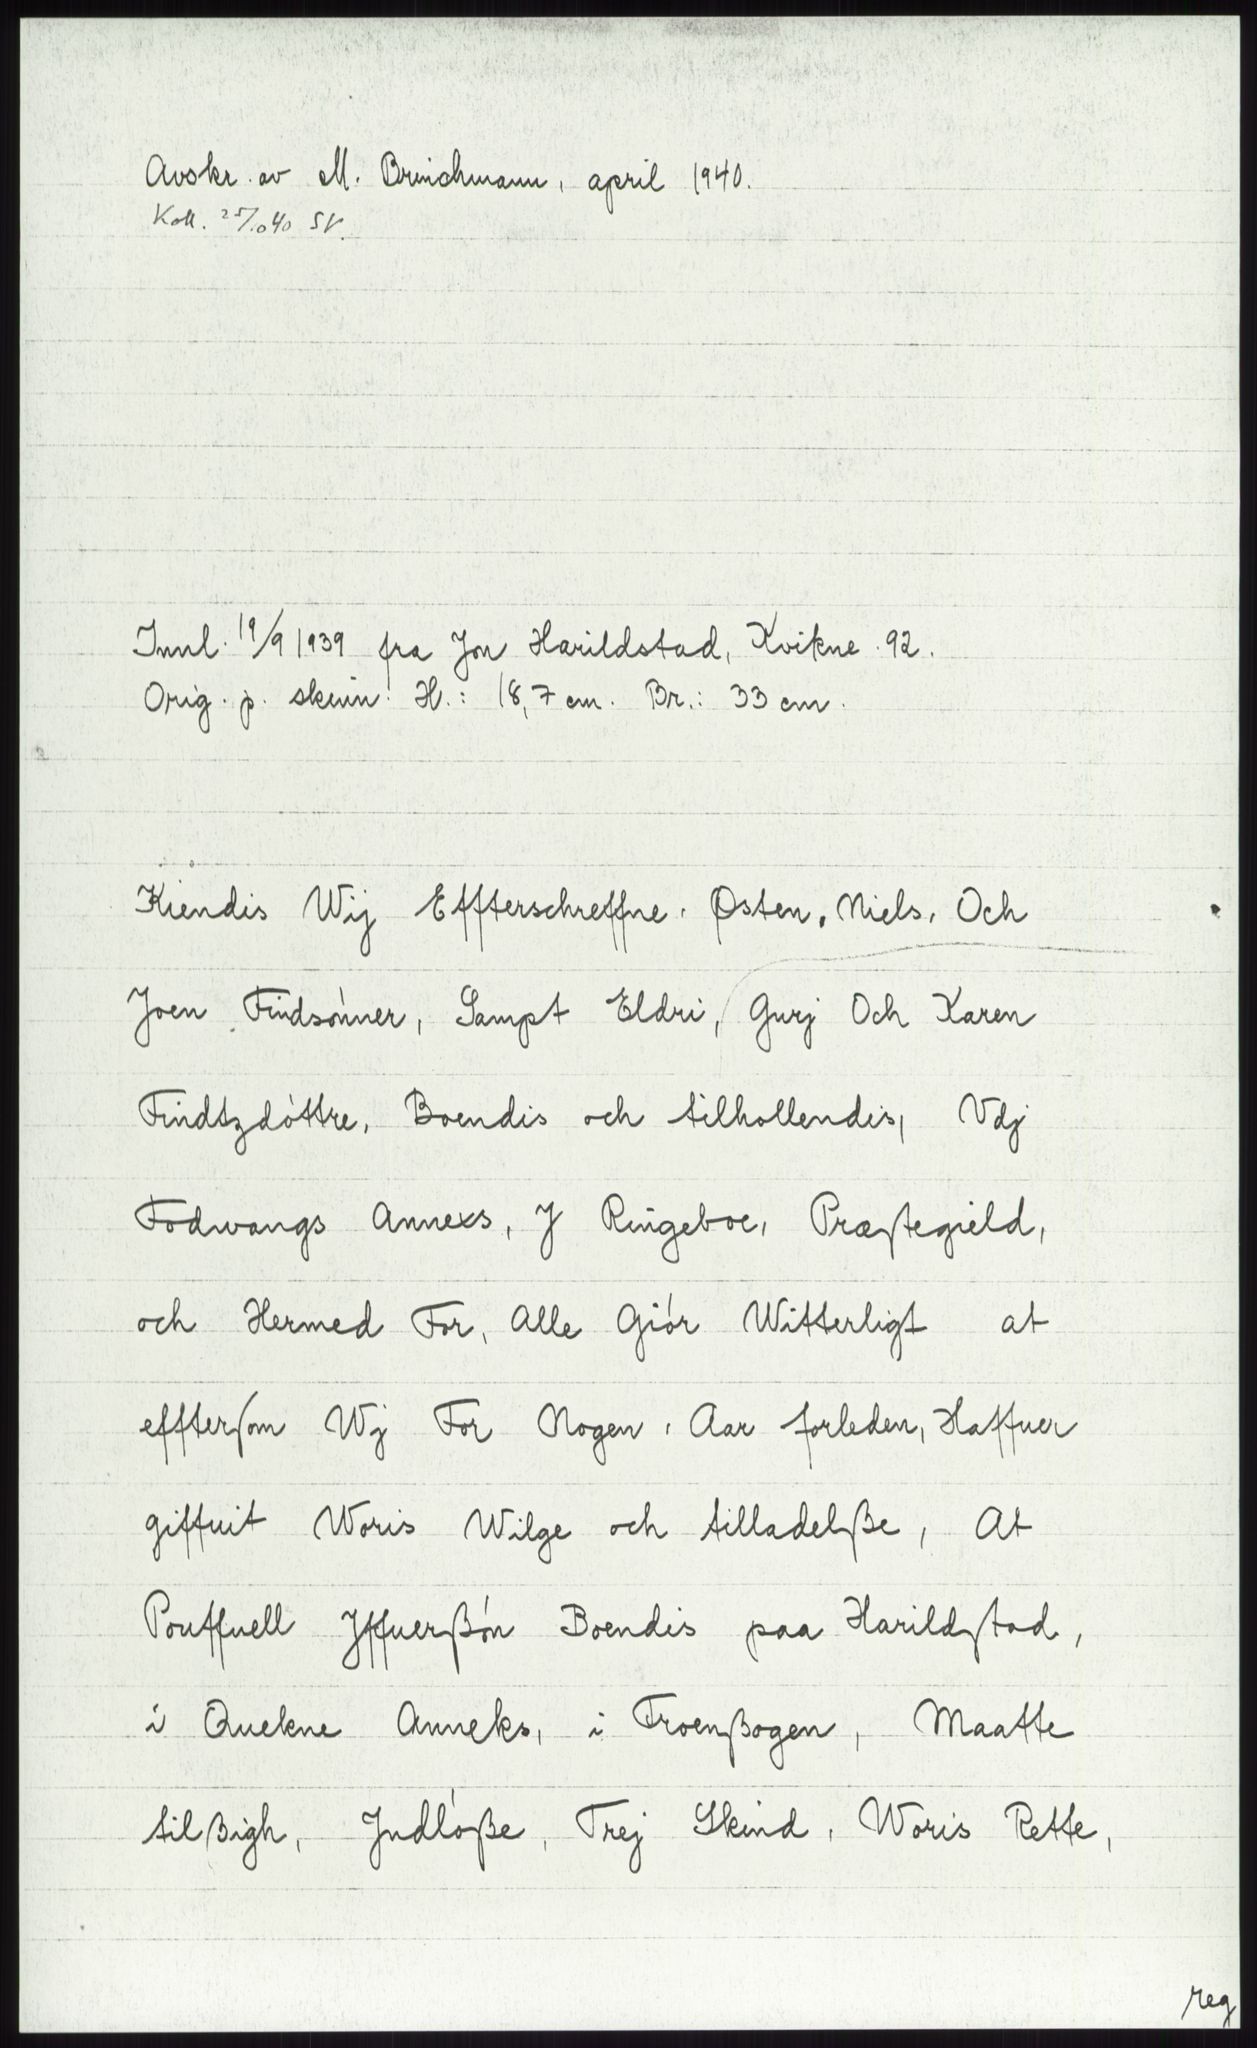 Avskr. av M. Brinchmann, april 1940.
Koll. 25/10 40 SV.
Innl. 19/9 1939 fra Jon Harildstad, Kvikne. 92.
Orig. p. skinn. H.: 18,7 cm. Br.: 33 cm.
Kiendis Wij Effterschreffne. Østen, Niels, Och
Joen Findsónner, Sampt Eldri, Gurj Och Karen
Findtzdóttre, Boendis och tilhollendis, Vdj
Fodwangs Annexs, J Ringeboe, Præstegield,
och Hermed For, Alle Giór Witterligt at
efftersom Wj For Nogen, Aar forleden, Haffuer
giffuit Woris Wilge och tilladelße, At
Pouffuell Jffuerßón Boendis paa Harildstad,
i Quekne Anneks, i Froenßogen, Maatte
til ßigh, Jndlóße, Trej Skind, Woris Rette,
reg